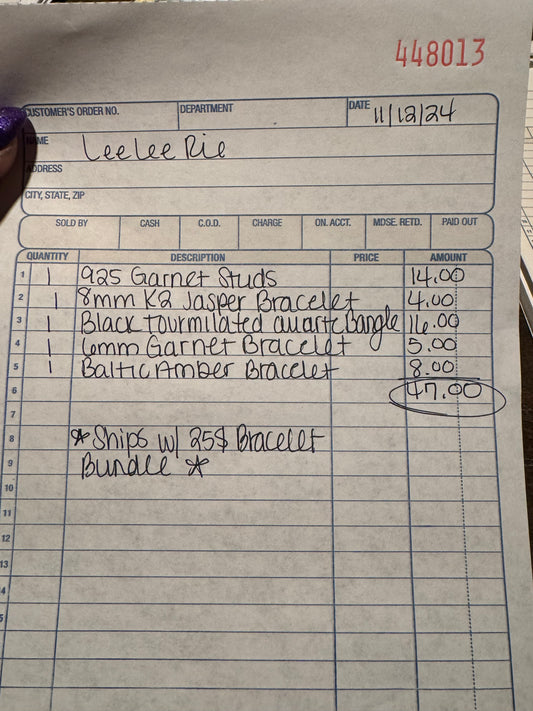 448013
CUSTOMER'S ORDER NO. DEPARTMENT DATE 11/12/24
NAME LeeLee Rie
ADDRESS
CITY, STATE, ZIP
SOLD BY CASH C.O.D. CHARGE ON. ACCT. MDSE. RETD. PAID OUT
QUANTITY DESCRIPTION PRICE AMOUNT
1 1 925 Garnet Studs 14.00
2 1 8mm K2 Jasper Bracelet 4.00
3 1 Black tourmilated quartz bangle 16.00
4 1 6mm Garnet Bracelet 5.00
5 1 Baltic Amber Bracelet 8.00
6 47.00
7
8 *Ships w/ 25$ Bracelet
9 Bundle *
10
11
12
13
4
5